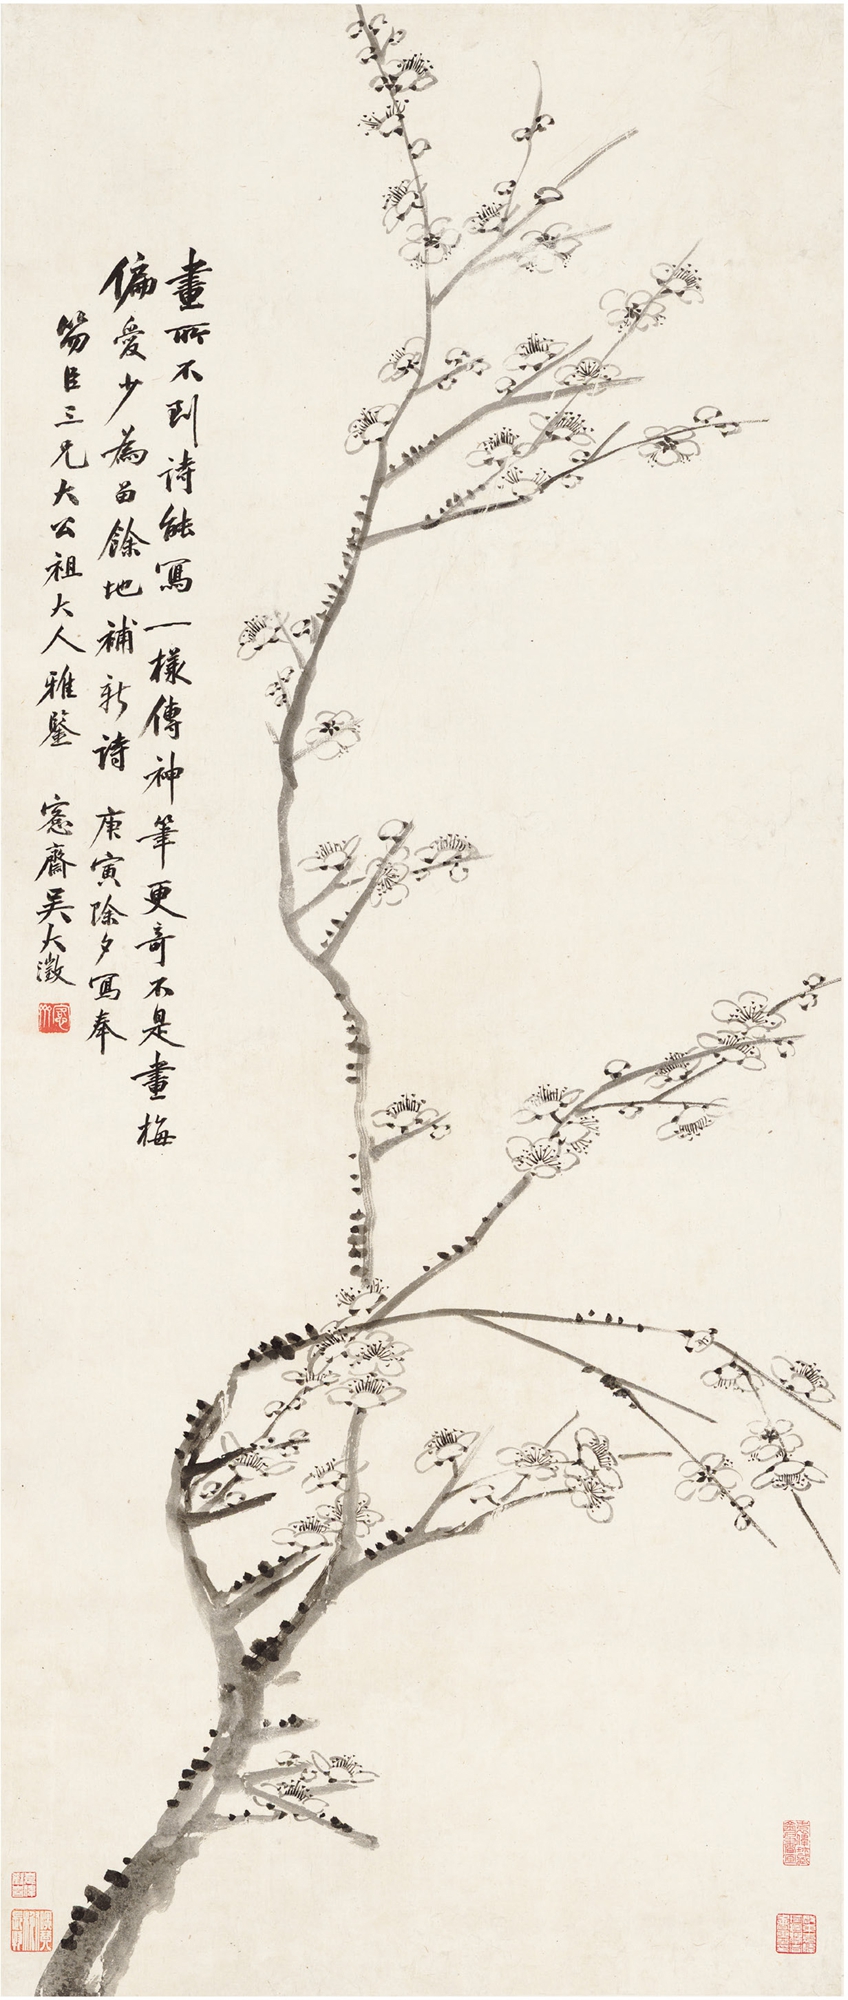 畫所不到詩能寫一樣傳神筆更奇不是畫梅
偏愛少為留餘地補新詩 庚寅除夕寫奉
笏臣三兄大公祖大人雅鑒 愙齋吳大澂